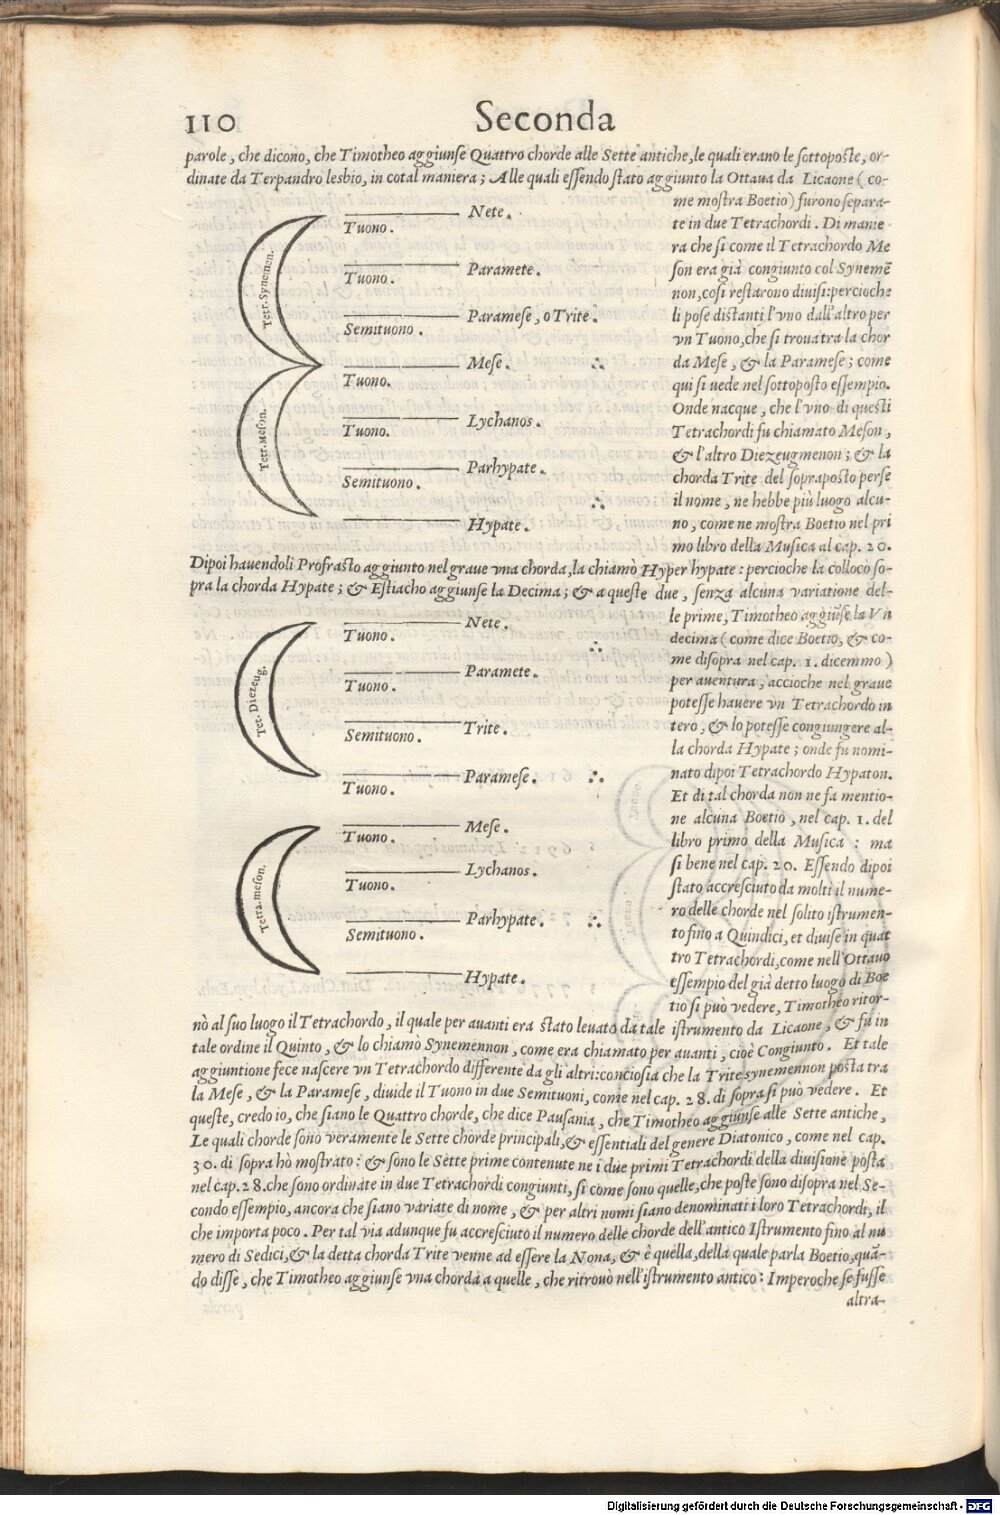 110 Seconda
parole, che dicono, che Timotheo aggiunſe Quattro chorde alle Sette antiche, le quali erano le ſottopoſte, or-
dinate da Terpandro lesbio, in cotal maniera; Alle quali eſſendo ſtato aggiunto la Ottaua da Licaone (co-
me moſtra Boetio) furono ſepara-
te in due Tetrachordi. Di manie
ra che ſi come il Tetrachordo Me
ſon era già congiunto col Synemē
non, coſi reſtarono diuiſi: percioche
li poſe diſtanti l'vno dall'altro per
vn Tuono, che ſi troua tra la chor
da Meſe, & la Parameſe; come
qui ſi uede nel ſottopoſto eſſempio.
Onde nacque, che l'vno di queſti
Tetrachordi fu chiamato Meſon,
& l'altro Diezeugmenon; & la
chorda Trite del ſopraposto perſe
il nome, ne hebbe più luogo alcu-
no, come ne moſtra Boetio nel pri
mo libro della Muſica al cap. 20.
Tetr. Synemen.
Tetr. Meſon.
Nete.
Tuono.
Paramete.
Tuono.
Parameſe, o Trite.
Semituono.
Meſe.
Tuono.
Lychanos.
Tuono.
Parhypate.
Semituono.
Hypate.
Dipoi hauendoli Profraſto aggiunto nel graue vna chorda, la chiamò Hyper hypate: percioche la collocò ſo-
pra la chorda Hypate; & Eſtiacho aggiunſe la Decima; & a queſte due, ſenza alcuna variatione del-
le prime, Timotheo aggiūſe la Vn
decima (come dice Boetio, & co-
me diſopra nel cap. 1. dicemmo)
per auentura, accioche nel graue
poteſſe hauere vn Tetrachordo in
tero, & lo poteſſe congiungere al-
la chorda Hypate; onde fu nomi-
nato dipoi Tetrachordo Hypaton.
Et di tal chorda non ne fa mentio-
ne alcuna Boetio, nel cap. 1. del
libro primo della Muſica: ma
ſi bene nel cap. 20. Eſſendo dipoi
ſtato accreſciuto da molti il nume-
ro delle chorde nel ſolito iſtrumen-
to fino a Quindici, et diuiſe in quat
tro Tetrachordi, come nell'Ottauo
eſſempio del già detto luogo di Boe
tio ſi può vedere, Timotheo ritor-
Tet. Diezeug.
Nete.
Tuono.
Paramete.
Tuono.
Trite.
Semituono.
Parameſe.
Tuono.
Tetra. meſon.
Meſe.
Tuono.
Lychanos.
Tuono.
Parhypate.
Semituono.
Hypate.
nò al ſuo luogo il Tetrachordo, il quale per auanti era ſtato leuato da tale iſtrumento da Licaone, & fu in
tale ordine il Quinto, & lo chiamò Synemennon, come era chiamato per auanti, cioè Congiunto. Et tale
aggiuntione fece naſcere vn Tetrachordo differente da gli altri: concioſia che la Trite synemennon poſta tra
la Meſe, & la Parameſe, diuide il Tuono in due Semituoni, come nel cap. 28. di ſopra ſi può vedere. Et
queſte, credo io, che ſiano le Quattro chorde, che dice Pauſania, che Timotheo aggiunſe alle Sette antiche,
Le quali chorde ſono veramente le Sette chorde principali, & eſſentiali del genere Diatonico, come nel cap.
30. di ſopra hò moſtrato: & ſono le Sette prime contenute ne i due primi Tetrachordi della diuiſione poſta
nel cap. 28. che ſono ordinate in due Tetrachordi congiunti, ſi come ſono quelle, che poſte ſono diſopra nel Se-
condo eſſempio, ancora che ſiano variate di nome, & per altri nomi ſiano denominati i loro Tetrachordi, il
che importa poco. Per tal via adunque fu accreſciuto il numero delle chorde dell'antico Iſtrumento fino al nu
mero di Sedici, & la detta chorda Trite venne ad eſſere la Nona, & è quella, della quale parla Boetio, quā-
do diſſe, che Timotheo aggiunſe vna chorda a quelle, che ritrouò nell'iſtrumento antico: Imperoche ſe fuſſe
altra-
Digitalisierung gefördert durch die Deutsche Forschungsgemeinschaft - DFG